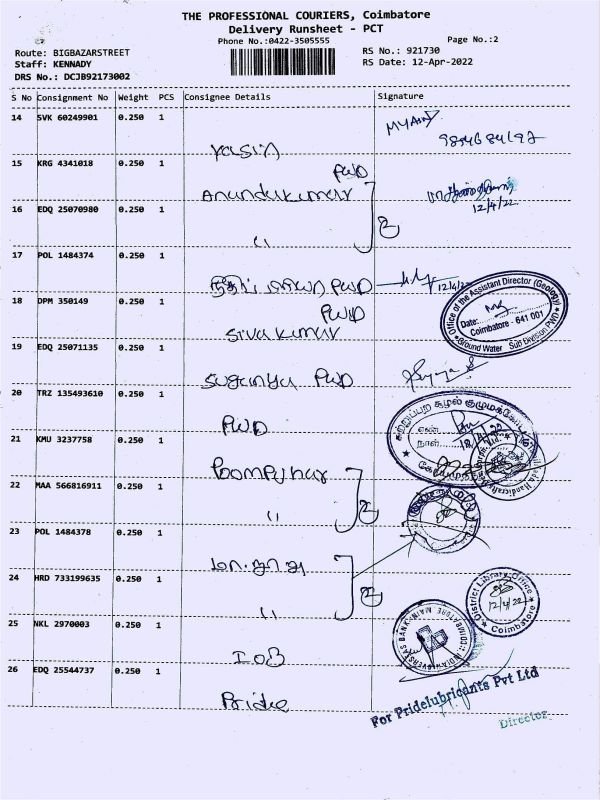 THE PROFESSIONAL COURIERS, Coimbatore
Delivery Runsheet - PCT
Phone No.:0422-3505555 Page No.:2
Route: BIGBAZARSTREET RS No.: 921730
Staff: KENNADY RS Date: 12-Apr-2022
DRS No.: DCJB92173002
S No Consignment No Weight PCS Consignee Details Signature
14 SVK 60249901 0.250 1
Yasin
15 KRG 4341018 0.250 1
PWD
Anandukumar
12/4/22
16 EDQ 25070980 0.250 1
"
17 POL 1484374 0.250 1
PWD 12/4/22
18 DPM 350149 0.250 1
PWD
Sivakumar
Office of the Assistant Director (Geology)
Date:
Coimbatore - 641 001
Ground Water Sub Division PWD
19 EDQ 25071135 0.250 1
Suganya PWD
20 TRZ 135493610 0.250 1
PWD
நாள்
21 KMU 3237758 0.250 1
Poompuhar
22 MAA 566816911 0.250 1
"
23 POL 1484378 0.250 1
24 HRD 733199635 0.250 1
"
District Library Office
12/4/22
Coimbatore
25 NKL 2970003 0.250 1
IOB
26 EDQ 25544737 0.250 1
Pride
For Pridelubricants Pvt Ltd
Director